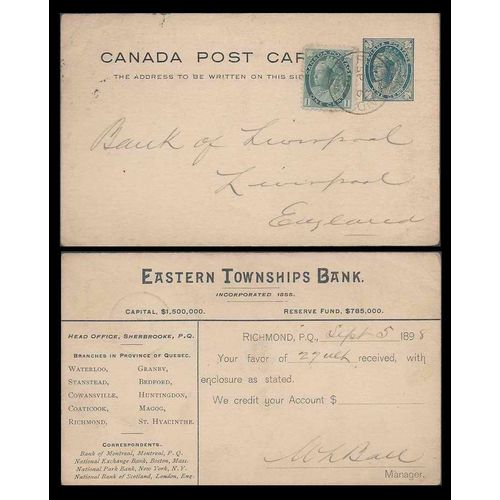 CANADA POST CAR
THE ADDRESS TO BE WRITTEN ON THIS SI
Bank of Liverpool
Liverpool
England
EASTERN TOWNSHIPS BANK.
INCORPORATED 1855.
CAPITAL, $1,500,000. RESERVE FUND, $785,000.
HEAD OFFICE, SHERBROOKE, P.Q.
BRANCHES IN PROVINCE OF QUEBEC.
WATERLOO, GRANBY,
STANSTEAD, BEDFORD,
COWANSVILLE, HUNTINGDON,
COATICOOK, MAGOG,
RICHMOND, ST. HYACINTHE.
CORRESPONDENTS.
Bank of Montreal, Montreal, P. Q.
National Exchange Bank, Boston, Mass.
National Park Bank, New York, N. Y.
National Bank of Scotland, London, Eng.
RICHMOND, P.Q., Sept 5 1898
Your favor of 27 ult received, with
enclosure as stated.
We credit your Account $
Manager.